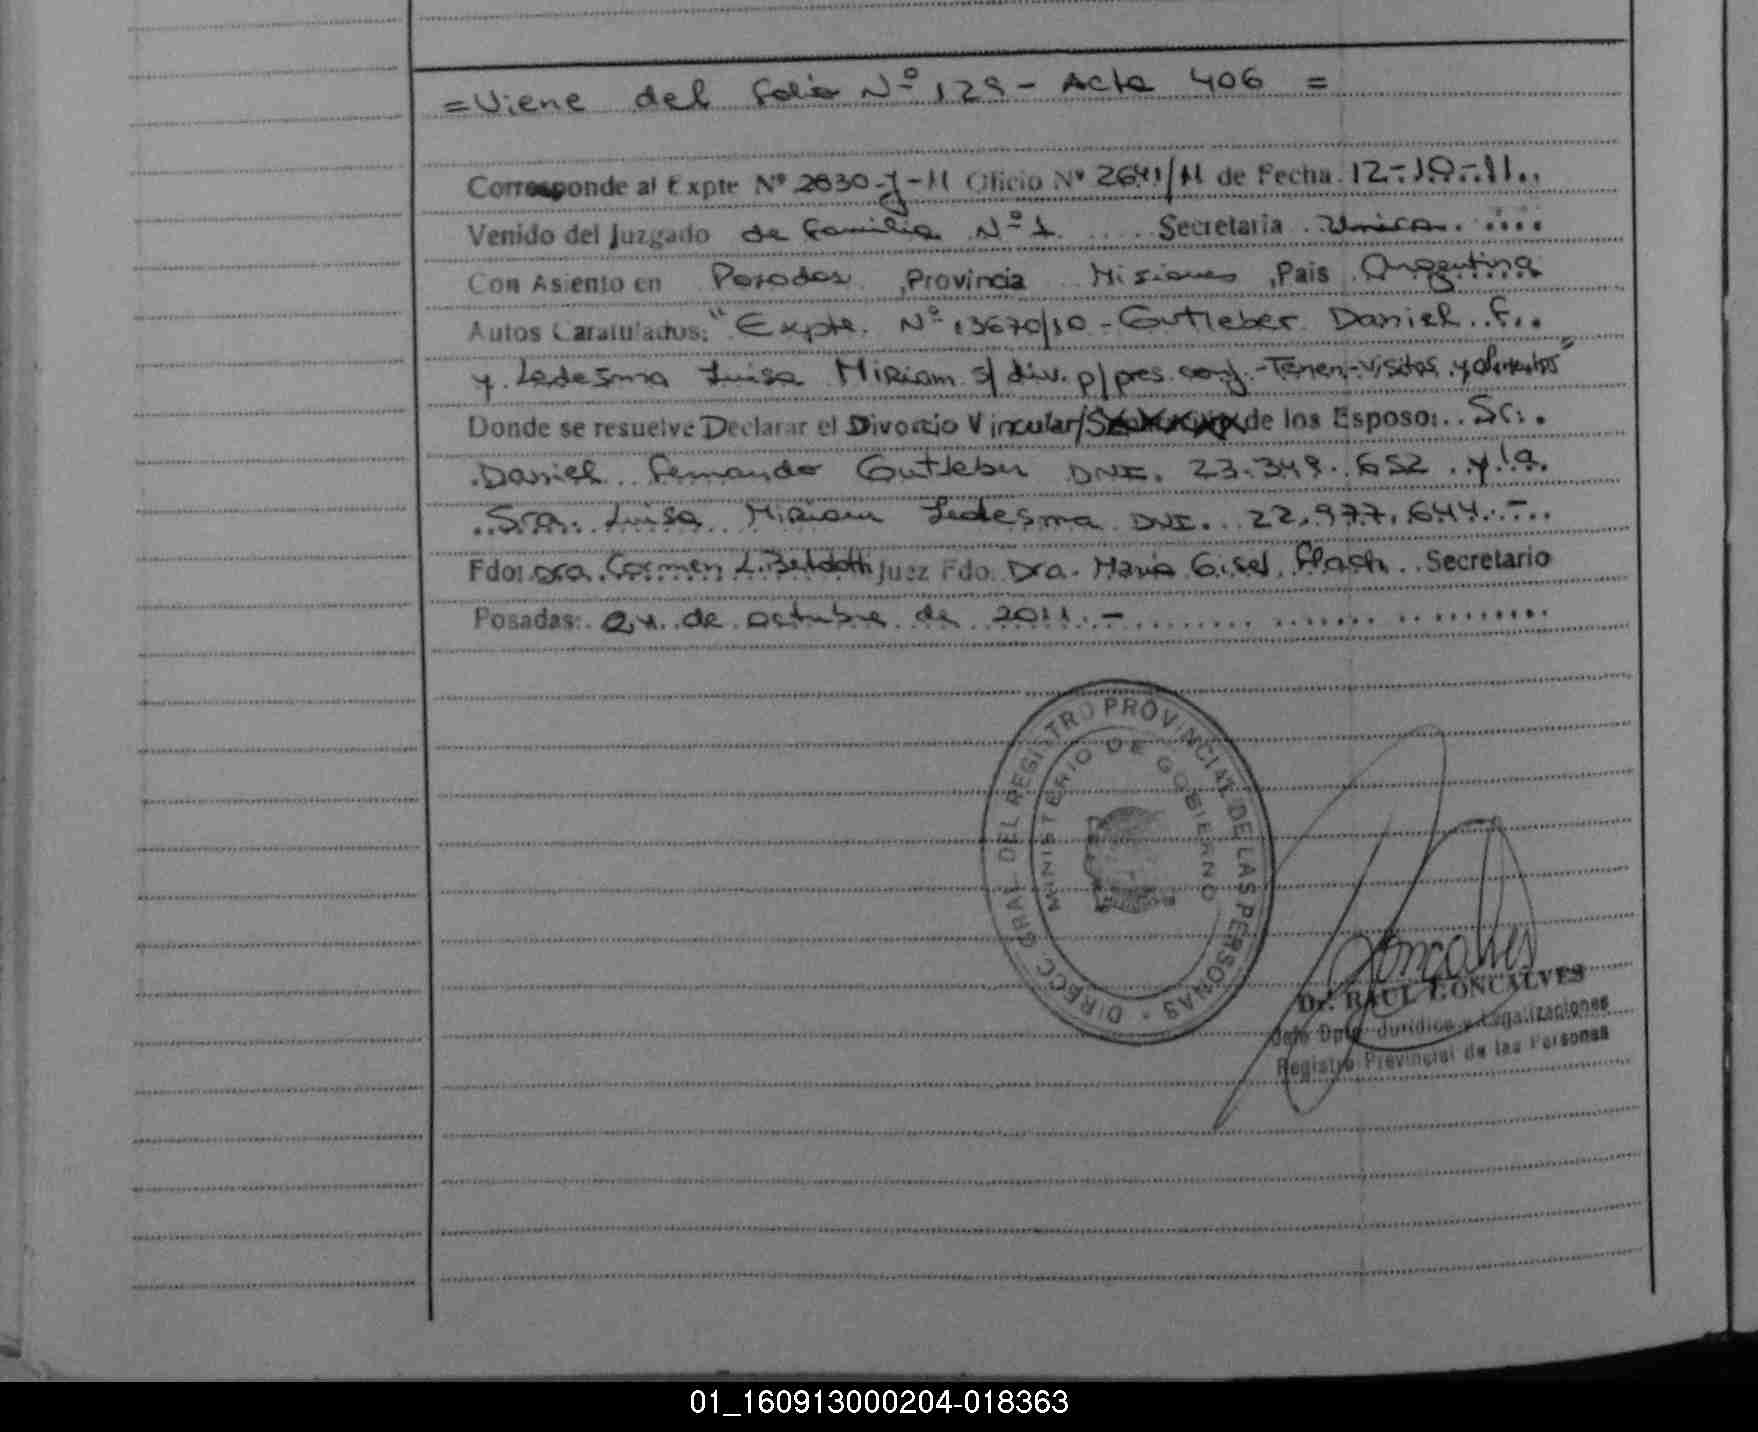 = Viene del folio Nº 129 - Acta 406 =
Corresponde al Expte Nº 2830-J-11 Oficio Nº 2641/11 de Fecha 12-10-11..
Venido del Juzgado de familia Nº 1 .... Secretaria Unica. ....
Con Asiento en Posadas, Provincia Misiones, Pais Argentina
Autos Caratulados: "Expte. Nº 13670/10 - Gutleber Daniel F..
y Ledesma Luisa Miriam s/ div. p/ pres. conj. - Tenen - visitas y alimentos"
Donde se resuelve Declarar el Divorcio Vincular/ de los Esposo: .. Sr. .
Daniel Fernando Gutleber DNI. 23.349.652 y la
Sra. Luisa Miriam Ledesma DNI. 22.977.644.-
Fdo: Dra. Carmen L. Juez Fdo. Dra. Maria Gisel Flach .. Secretario
Posadas: de octubre de 2011.-
DIRECC. GRAL. DEL REGISTRO PROVINCIAL DE LAS PERSONAS
MINISTERIO DE GOBIERNO
Goncalves
Dr. RAUL GONCALVES
Jefe Dpto. Juridico y Legalizaciones
Registro Provincial de las Personas
01_160913000204-018363